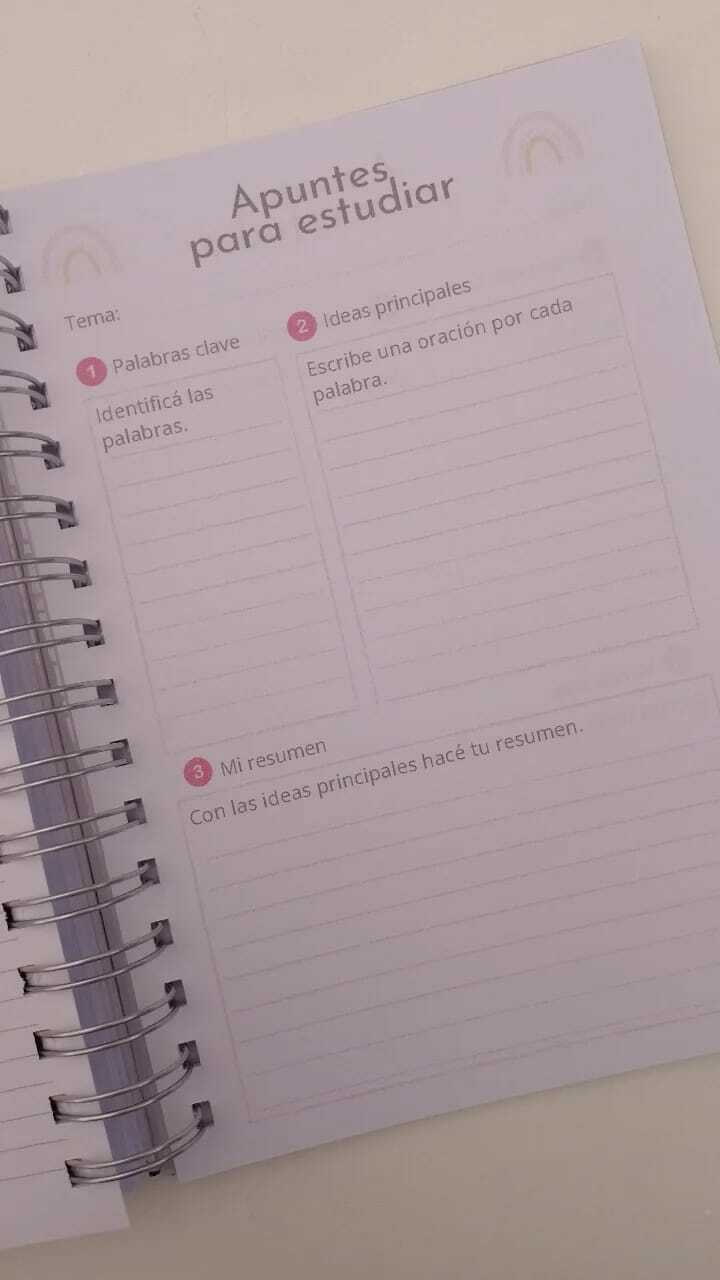 Apuntes
para estudiar
Tema:
1 Palabras clave
Identificá las
palabras.
2 Ideas principales
Escribe una oración por cada
palabra.
3 Mi resumen
Con las ideas principales hacé tu resumen.